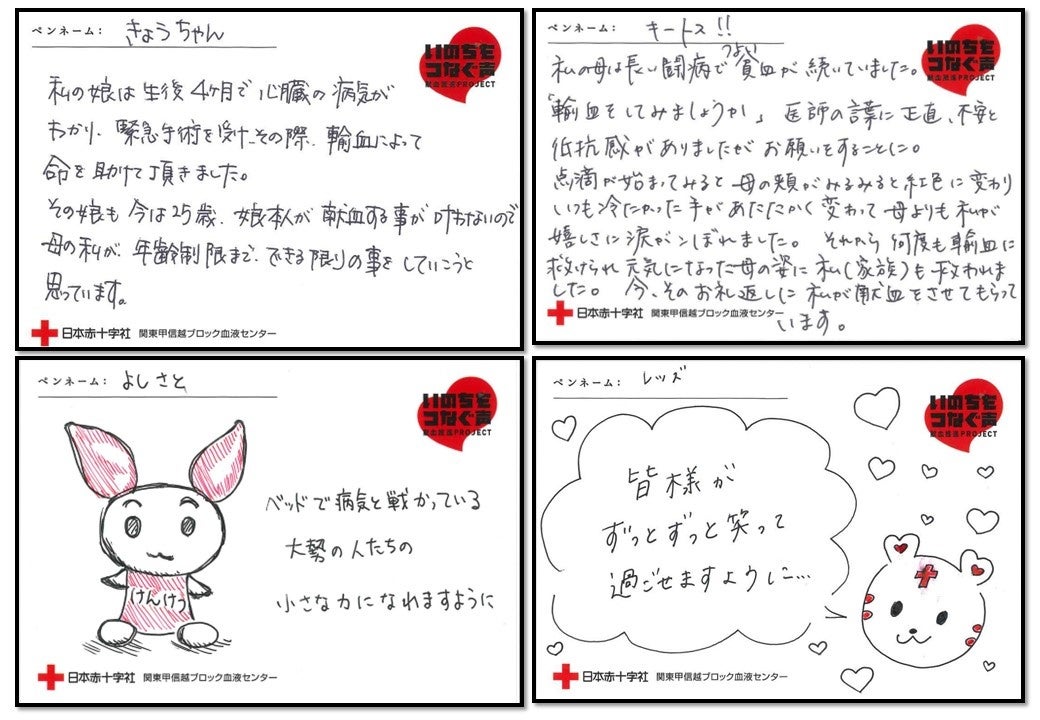 ペンネーム： きょうちゃん
いのちを
つなぐ声
献血推進PROJECT
私の娘は生後4ヶ月で心臓の病気が
わかり、緊急手術を受け、その際、輸血によって
命を助けて頂きました。
その娘も今は25歳、娘本人が献血する事が叶わないので
母の私が、年齢制限まで、できる限りの事をしていこうと
思っています。
日本赤十字社 関東甲信越ブロック血液センター
ペンネーム： キートス!!
いのちを
つなぐ声
献血推進PROJECT
私の母は長い闘病で貧血が続いていました。
つよい
「輸血をしてみましょうか」 医師の言葉に正直、不安と
低抗感がありましたがお願いをすることに。
点滴が始まってみると母の頬がみるみると紅色に変わり
いつも冷たかった手があたたかく変わって母よりも私が
嬉しさに涙がこぼれました。 それから何度も輸血に
救けられ元気になった母の姿に私(家族)も救われま
した。 今、そのお礼返しに私が献血をさせてもらって
います。
日本赤十字社 関東甲信越ブロック血液センター
ペンネーム： よしさと
いのちを
つなぐ声
献血推進PROJECT
ベッドで病気と戦かっている
大勢の人たちの
小さな力になれますように
けんけつ
日本赤十字社 関東甲信越ブロック血液センター
ペンネーム： レッズ
いのちを
つなぐ声
献血推進PROJECT
皆様が
ずっとずっと笑って
過ごせますように…
日本赤十字社 関東甲信越ブロック血液センター